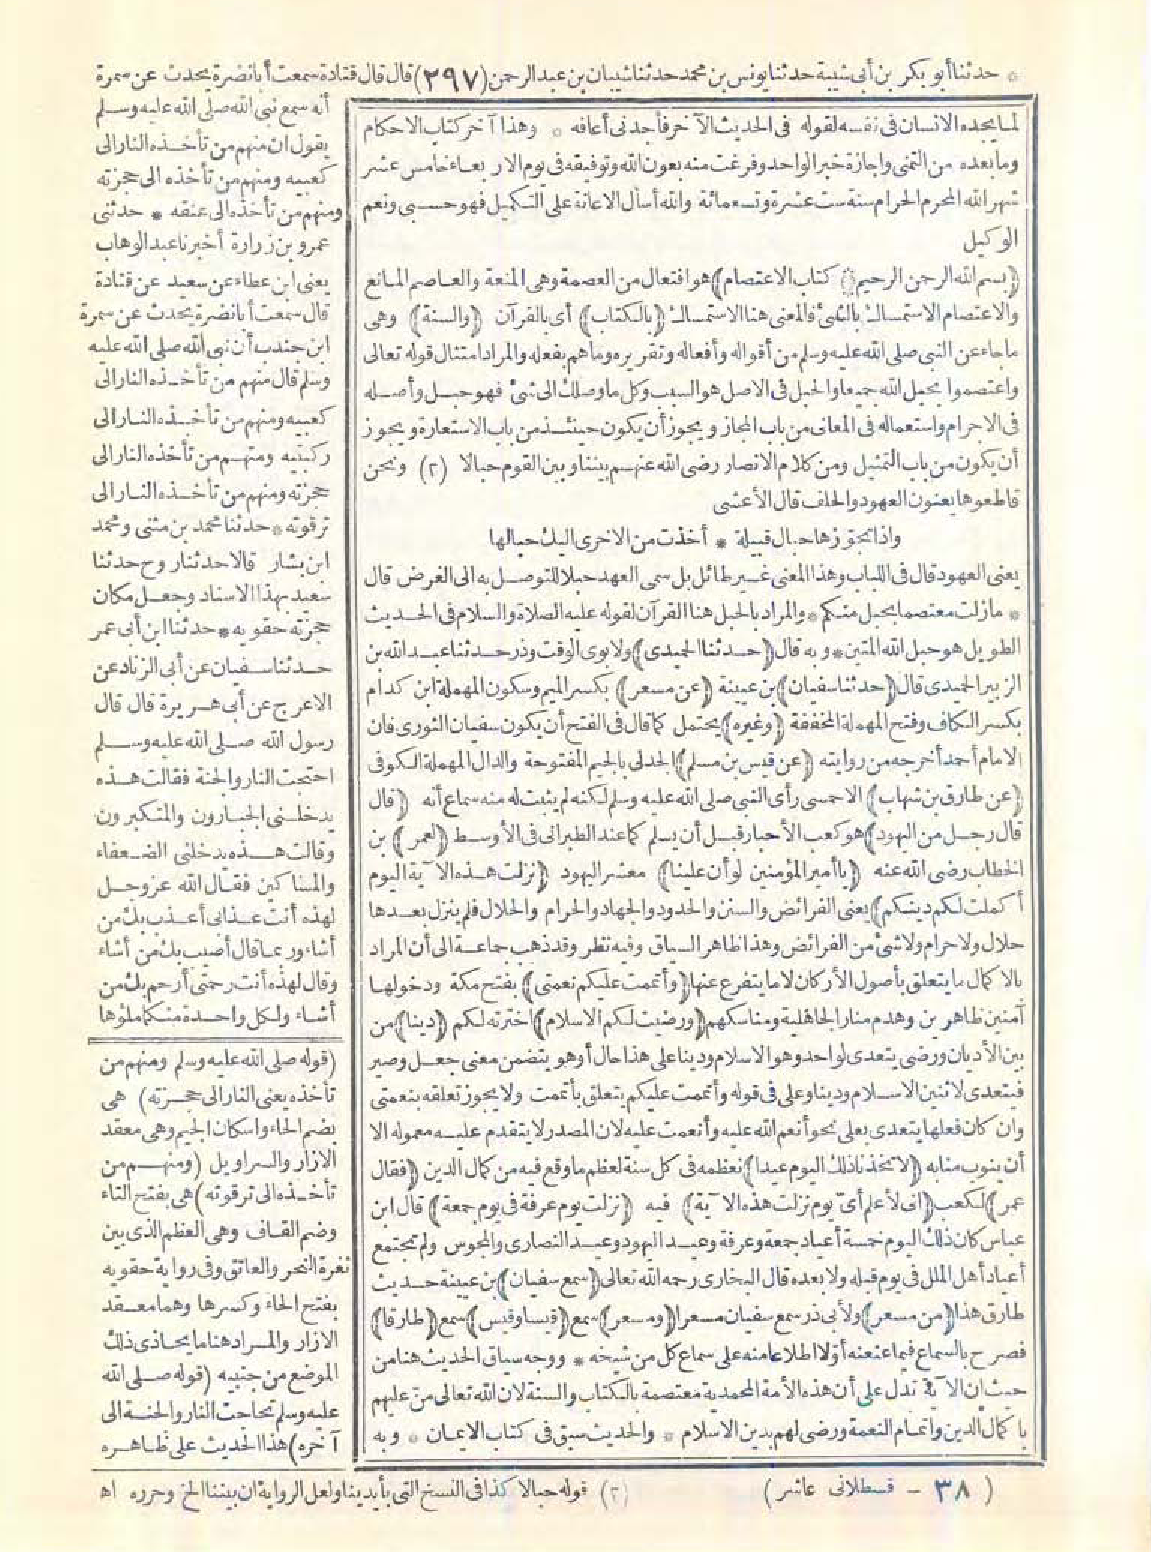 * حدثنا أبو بكر بن أبي شيبة حدثنا يونس بن محمد حدثنا شيبان بن عبد الرحمن (٢٩٧) قال قال قتادة سمعت أبا نضرة يحدث عن سمرة
لما يجده الانسان في نفسه لقوله في الحديث الآخر فأجدني أعافه * وهذا آخر كتاب الاحكام
وما بعده من التمني واجازة خبر الواحد وفرغت منه بعون الله وتوفيقه في يوم الاربعاء خامس عشر
شهر الله المحرم الحرام سنة ست عشرة وتسعمائة والله أسأل الاعانة على التكميل فهو حسبي ونعم
الوكيل
(بسم الله الرحمن الرحيم * كتاب الاعتصام) هو افتعال من العصمة وهي المنعة والعاصم المانع
والاعتصام الاستمساك بالشئ فالمعنى هنا الاستمساك (بالكتاب) أي بالقرآن (والسنة) وهي
ما جاء عن النبي صلى الله عليه وسلم من أقواله وأفعاله وتقريره وما هم بفعله والمراد امتثال قوله تعالى
واعتصموا بحبل الله جميعا والحبل في الاصل هو السبب وكل ما وصلك الى شئ فهو حبل وأصله
في الاجرام واستعماله في المعاني من باب المجاز ويجوز أن يكون حينئذ من باب الاستعارة ويجوز
أن يكون من باب التمثيل ومن كلام الانصار رضي الله عنهم بيننا وبين القوم حبالا (٢) ونحن
قاطعوها يعنون العهود والحلف قال الأعشى
واذا تجوزها حبال قبيلة * أخذت من الاخرى اليك حبالها
يعني العهود قال في اللباب وهذا المعنى غير طائل بل سمي العهد حبلا للتوصل به الى الغرض قال
* مازلت معتصما بحبل منكم * والمراد بالحبل هنا القرآن لقوله عليه الصلاة والسلام في الحديث
الطويل هو حبل الله المتين * وبه قال (حدثنا الحميدي) ولابوي الوقت وذر حدثنا عبد الله بن
الزبير الحميدي قال (حدثنا سفيان) بن عيينة (عن مسعر) بكسر الميم وسكون المهملة ابن كدام
بكسر الكاف وفتح المهملة المخففة (وغيره) يحتمل كما قال في الفتح أن يكون سفيان الثوري فان
الامام أحمد أخرجه من روايته (عن قيس بن مسلم) الجدلي بالجيم المفتوحة والدال المهملة الكوفي
(عن طارق بن شهاب) الاحمسي رأى النبي صلى الله عليه وسلم لكنه لم يثبت له منه سماع أنه (قال
قال رجل من اليهود) هو كعب الأحبار قبل أن يسلم كما عند الطبراني في الأوسط (لعمر) بن
الخطاب رضي الله عنه (يا أمير المؤمنين لو أن علينا) معشر اليهود (نزلت هذه الآية اليوم
أكملت لكم دينكم) يعني الفرائض والسنن والحدود والجهاد والحرام والحلال فلم ينزل بعدها
حلال ولا حرام ولا شئ من الفرائض وهذا ظاهر السياق وفيه نظر وقد ذهب جماعة الى أن المراد
بالاكمال ما يتعلق بأصول الأركان لا ما يتفرع عنها (وأتممت عليكم نعمتي) بفتح مكة ودخولها
آمنين ظاهرين وهدم منار الجاهلية ومناسكهم (ورضيت لكم الاسلام) اخترته لكم (دينا) من
بين الأديان ورضي يتعدى لواحد وهو الاسلام ودينا على هذا حال أو هو يتضمن معنى جعل وصير
فيتعدى لاثنين الاسلام ودينا وعلى في قوله وأتممت عليكم يتعلق بأتممت ولا يجوز تعلقه بنعمتي
وان كان فعلها يتعدى بعلى نحو أنعم الله عليه وأنعمت عليه لان المصدر لا يتقدم عليه معموله الا
أن ينوب منابه (لاتخذنا ذلك اليوم عيدا) نعظمه في كل سنة لعظم ما وقع فيه من كمال الدين (فقال
عمر) لكعب (اني لأعلم أي يوم نزلت هذه الآية) فيه (نزلت يوم عرفة في يوم جمعة) قال ابن
عباس كان ذلك اليوم خمسة أعياد جمعة وعرفة وعيد اليهود وعيد النصارى والمجوس ولم تجتمع
أعياد أهل الملل في يوم قبله ولا بعده قال البخاري رحمه الله تعالى (سمع سفيان) بن عيينة حديث
طارق هذا (من مسعر) ولأبي ذر سمع سفيان مسعرا (ومسعر) سمع (قيسا وقيس) سمع (طارقا)
فصرح بالسماع فيما عنعنه أولا اطلاعا منه على سماع كل من شيخه * ووجه سياق الحديث هنا من
حيث ان الآية تدل على أن هذه الأمة المحمدية معتصمة بالكتاب والسنة لان الله تعالى من عليهم
باكمال الدين واتمام النعمة ورضي لهم بدين الاسلام * والحديث سبق في كتاب الايمان * وبه
أنه سمع نبي الله صلى الله عليه وسلم
يقول ان منهم من تأخذه النار الى
كعبيه ومنهم من تأخذه الى حجزته
ومنهم من تأخذه الى عنقه * حدثني
عمرو بن زرارة أخبرنا عبد الوهاب
يعني ابن عطاء عن سعيد عن قتادة
قال سمعت أبا نضرة يحدث عن سمرة
ابن جندب أن نبي الله صلى الله عليه
وسلم قال منهم من تأخذه النار الى
كعبيه ومنهم من تأخذه النار الى
ركبتيه ومنهم من تأخذه النار الى
حجزته ومنهم من تأخذه النار الى
ترقوته * حدثنا محمد بن مثنى ومحمد
ابن بشار قالا حدثنا روح حدثنا
سعيد بهذا الاسناد وجعل مكان
حجزته حقويه * حدثنا ابن أبي عمر
حدثنا سفيان عن أبي الزناد عن
الاعرج عن أبي هريرة قال قال
رسول الله صلى الله عليه وسلم
احتجت النار والجنة فقالت هذه
يدخلني الجبارون والمتكبرون
وقالت هذه يدخلني الضعفاء
والمساكين فقال الله عز وجل
لهذه أنت عذابي أعذب بك من
أشاء وربما قال أصيب بك من أشاء
وقال لهذه أنت رحمتي أرحم بك من
أشاء ولكل واحدة منكما ملؤها
(قوله صلى الله عليه وسلم ومنهم من
تأخذه يعني النار الى حجزته) هي
بضم الحاء واسكان الجيم وهي معقد
الازار والسراويل (ومنهم من
تأخذه الى ترقوته) هي بفتح التاء
وضم القاف وهي العظم الذي بين
ثغرة النحر والعاتق وفي رواية حقويه
بفتح الحاء وكسرها وهما معقد
الازار والمراد هنا ما يحاذي ذلك
الموضع من جنبيه (قوله صلى الله
عليه وسلم تحاجت النار والجنة الى
آخره) هذا الحديث على ظاهره
(٣٨ - قسطلاني عاشر) (٢) قوله حبالا كذا في النسخ التي بأيدينا ولعل الرواية ان بيننا الخ وحرره اه